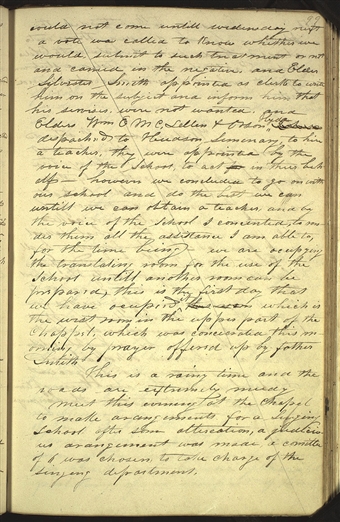 could not come untill wednesday next
a vote was called to know whether we
would submit to such treatment or not
and carried in the negative, and Elder
Silvester Smith appointed as clerk to write
him on the subject and inform him that
his services were not wanted, and
Elders Wm E. McLellen & Orson Hyde
dispached to Hudson Simenary to hire
a teacher, they were appointed by the
voice of the School, to act in their beh
alf— however we concluded to go on with
our school and do the best we can
untill we can obtain a teacher, and by
the voice of the School I consented to ren
der them all the assistance I am able to
for the time being,— we are occupying
the translating room for the use of the
School untill another room can be
prepared, this is the first day that
we have occupied it which is
the west room in the upper part of the
Chappel, which was concecrated this mo
rning by prayer offered up by father
Smith
This is a rainy time and the
roads are extremely mudy
meet this evening at the Chapel
to make arangements for a Singing
School after some altercation, a judicio
us arangement was made a comittee
of 6 was chosen, to take charge of the
singing department,